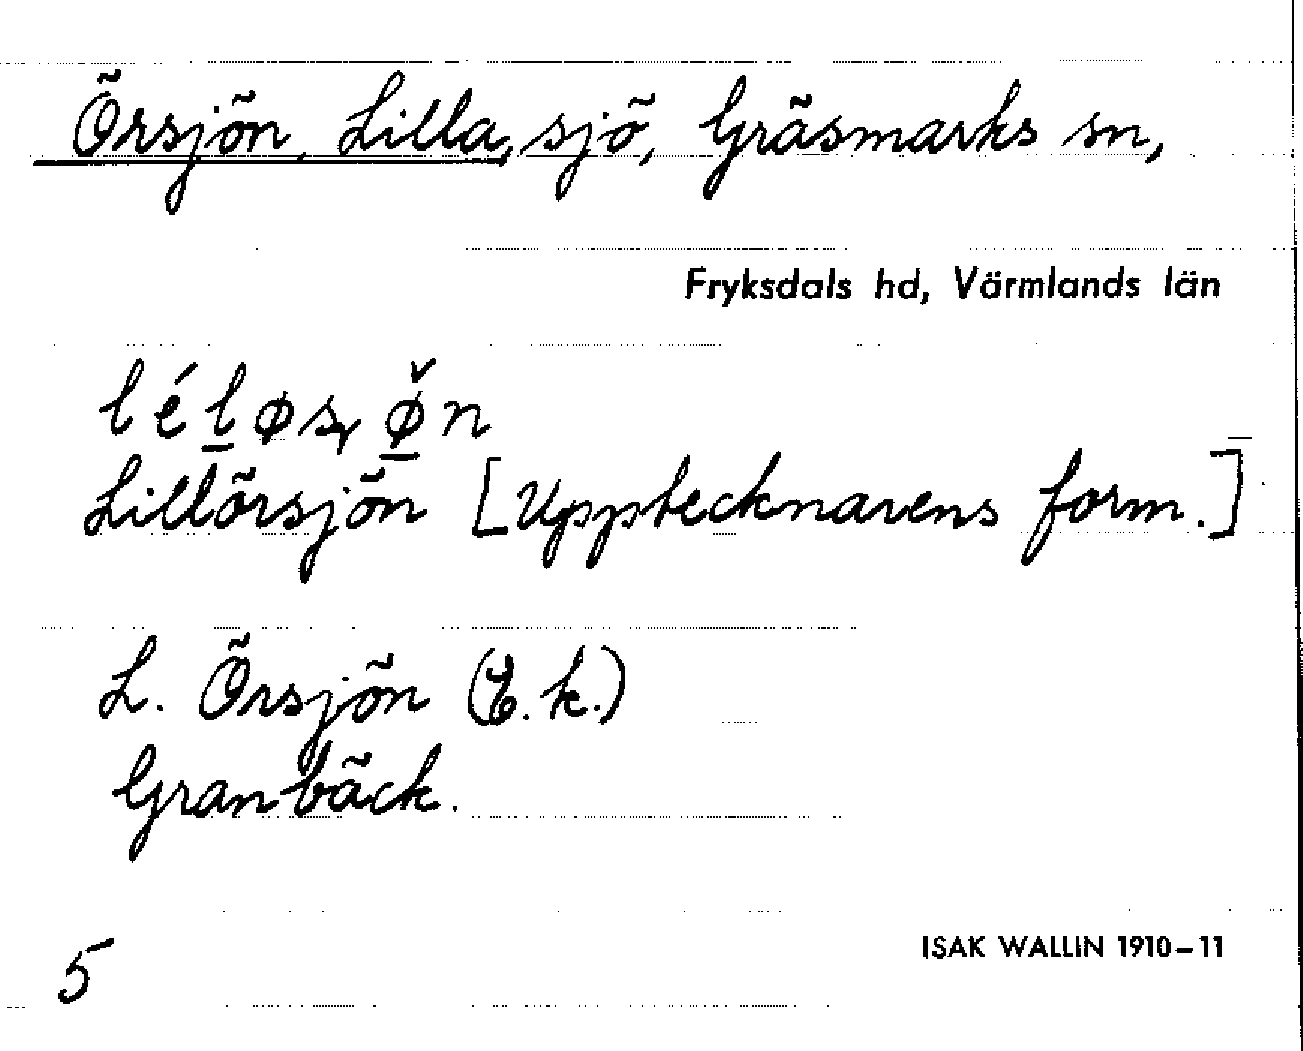 Örsjön, Lilla, sjö, Gräsmarks sn,
Fryksdals hd, Värmlands län
Lillörsjön [Upptecknarens form.]
L. Örsjön (E.k.)
Granbäck.
5
ISAK WALLIN 1910–11